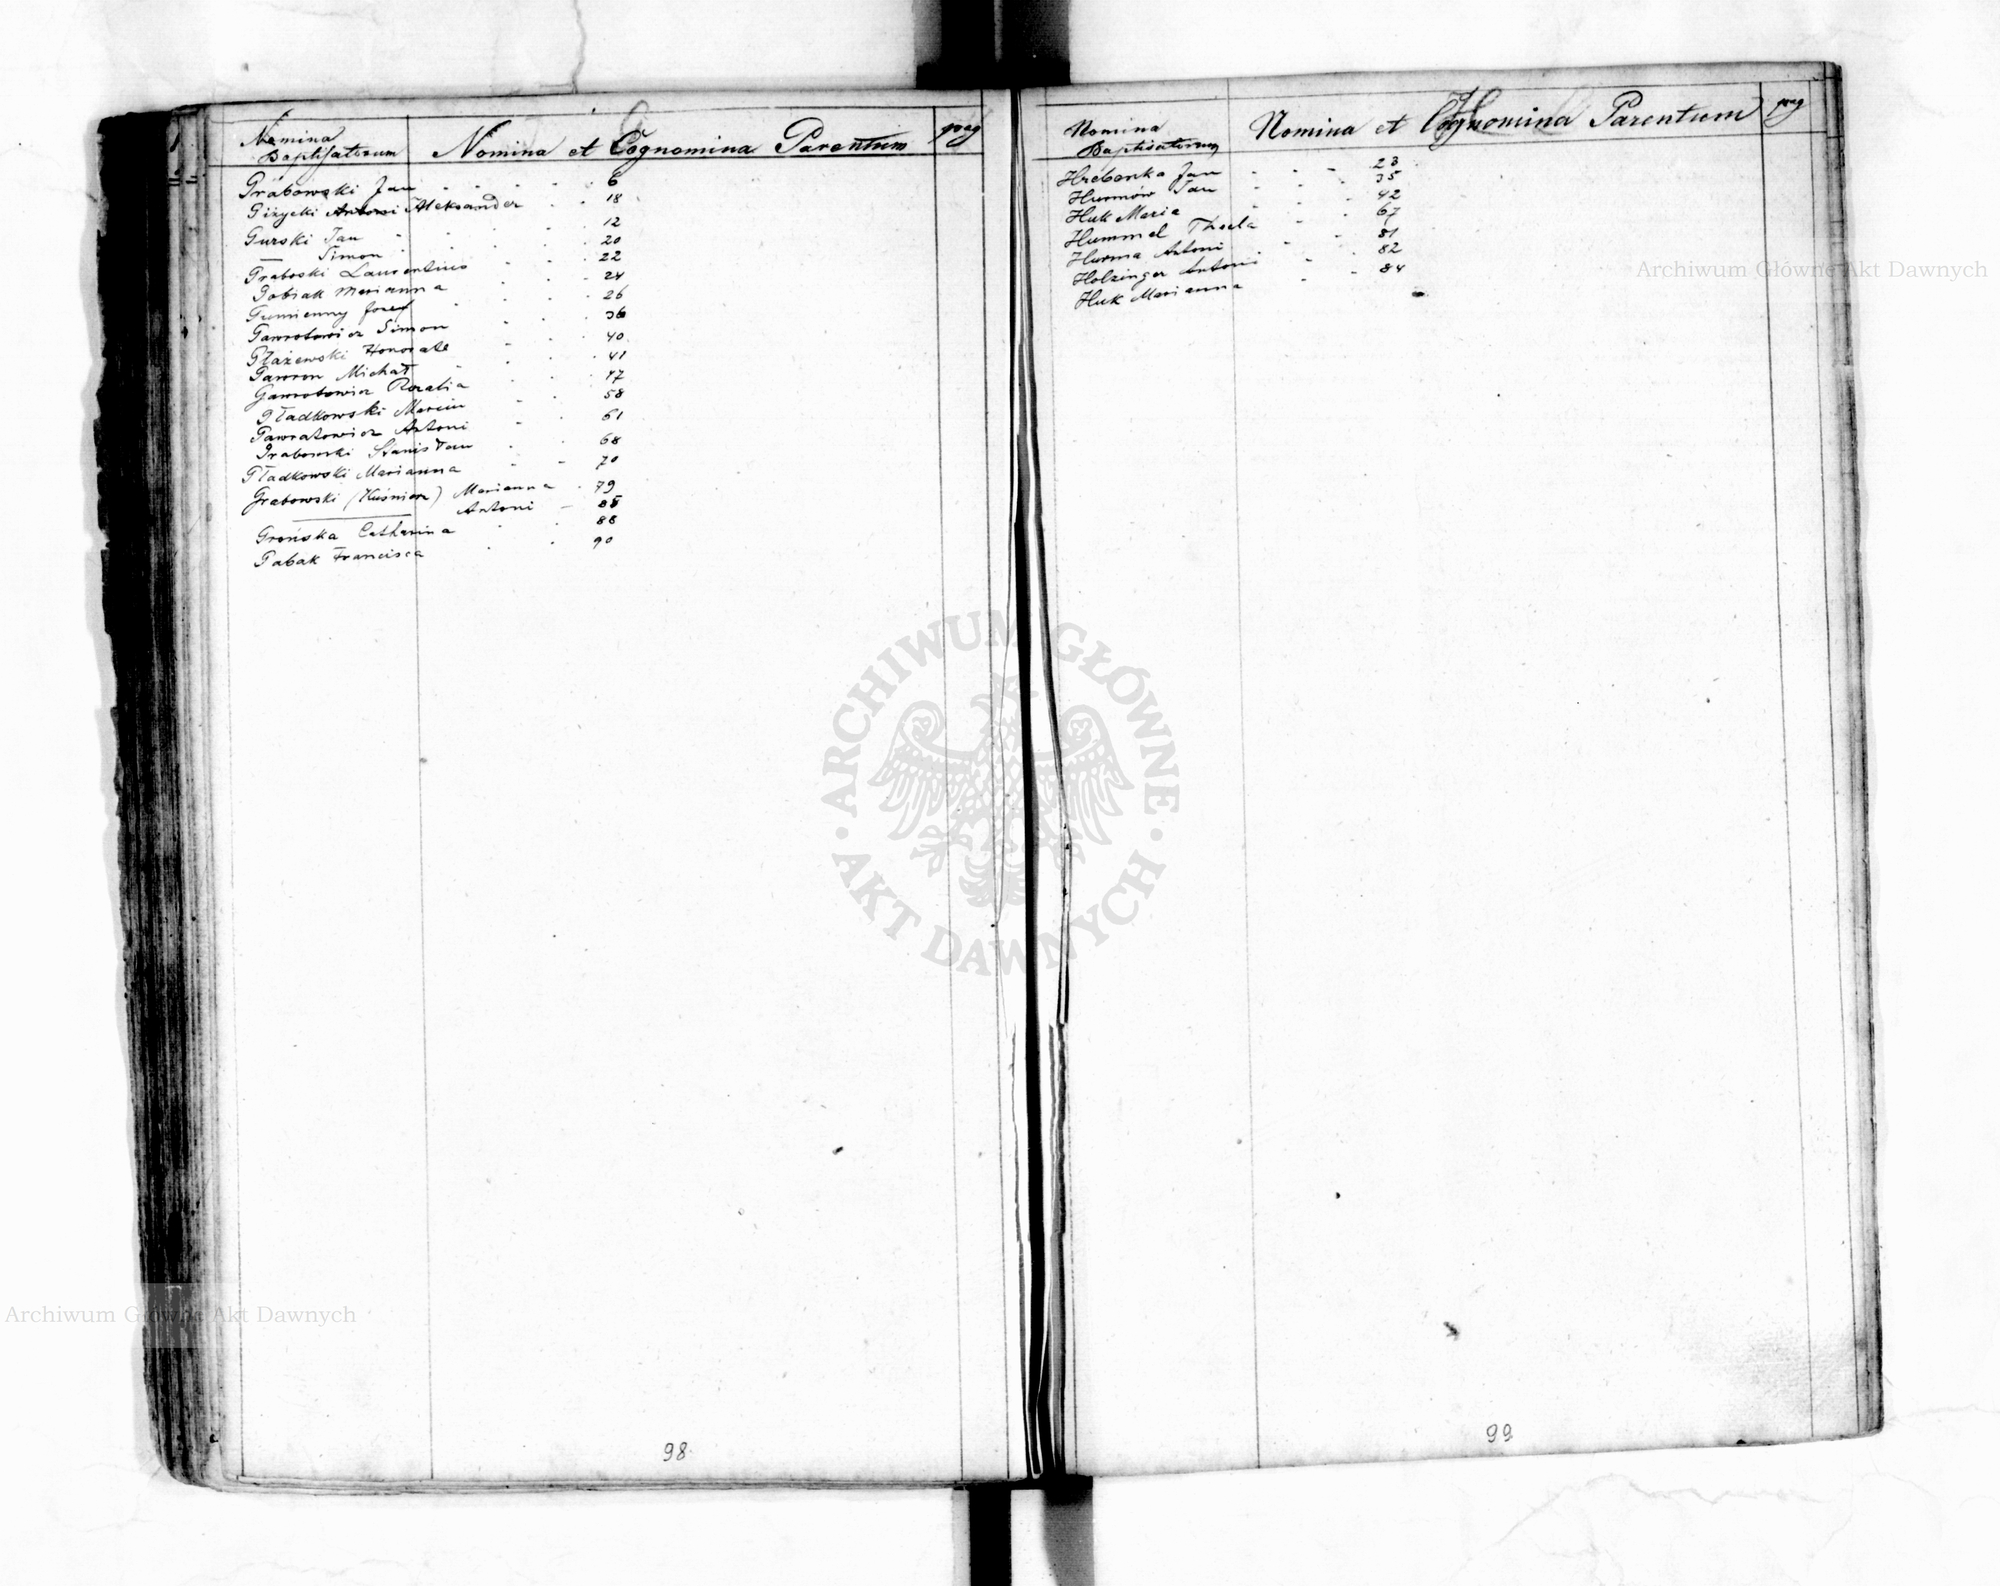 Nomina
Baptisatorum
Nomina et Cognomina Parentum
pag
Grabowski Jan 6
Giżycki Antoni Aleksander 18
Gurski Jan 12
— Simon 20
Graboski Laurentius 22
Gobiak Marianna 24
Gumienny Jozef 26
Gawrotowicz Simon 36
Głażewski Honorate 40
Gawron Michał 41
Gawrotowicz Rozalia 47
Gładkowski Marcin 58
Gawratowicz Antoni 61
Grabowski Stanisław 68
Gładkowski Marianna 70
Grabowski (Kuśnierz) Marianna 79
— Antoni 85
Grońska Catharina 88
Gabak Francisca 90
98
Nomina
Baptisatorum
Nomina et Cognomina Parentum
pag
H
Hrebenka Jan 23
Hurmów Jan 35
Huk Maria 42
Hummel Thecla 67
Hurma Antoni 81
Holzinger Antoni 82
Huk Marianna 84
99
Archiwum Główne Akt Dawnych
ARCHIWUM GŁÓWNE
AKT DAWNYCH
Archiwum Główne Akt Dawnych